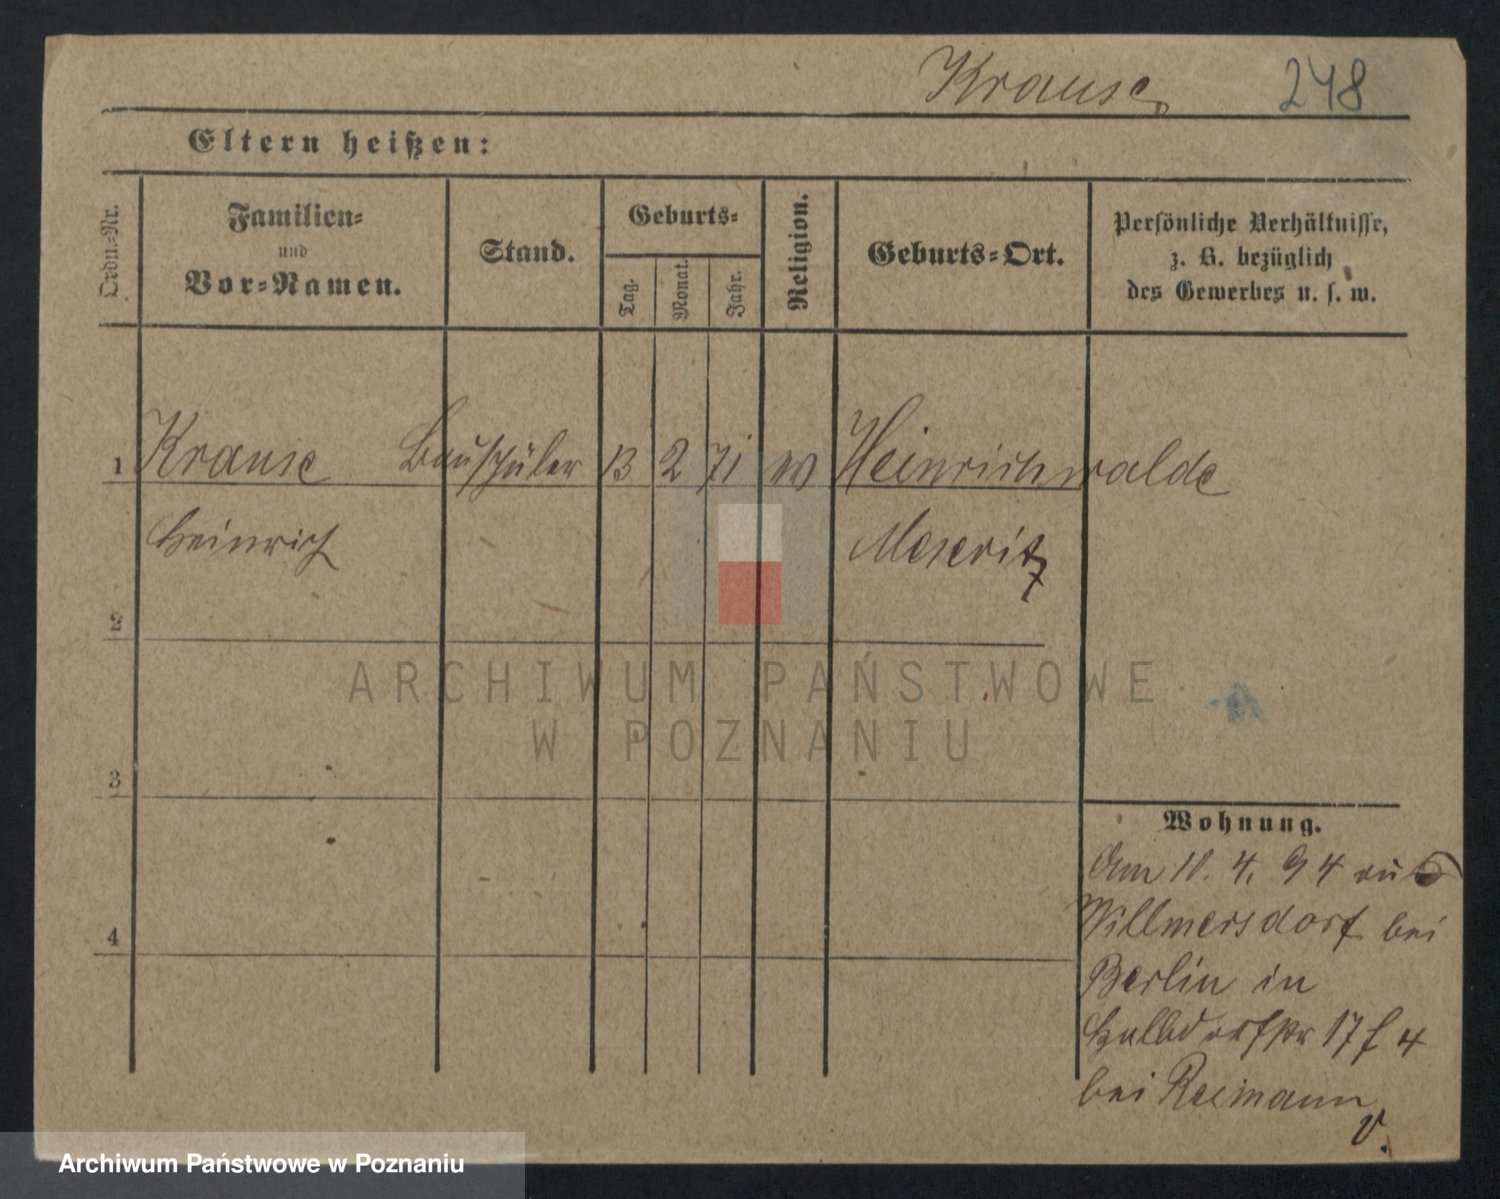 Krause 248
Eltern heißen:
Ordn.-Nr.
Familien-
und
Vor-Namen.
Stand.
Geburts-
Tag. Monat. Jahr.
Religion.
Geburts-Ort.
Persönliche Verhältnisse,
z. B. bezüglich
des Gewerbes u. s. w.
1 Krause Bauschüler 13 2 71 Heinrichwalde
Heinrich Meseritz
2
ARCHIWUM PAŃSTWOWE
W POZNANIU
3
Wohnung.
Am 11. 4. 94 aus
Willmersdorf bei
4
Berlin in
17
bei Reimann
Archiwum Państwowe w Poznaniu